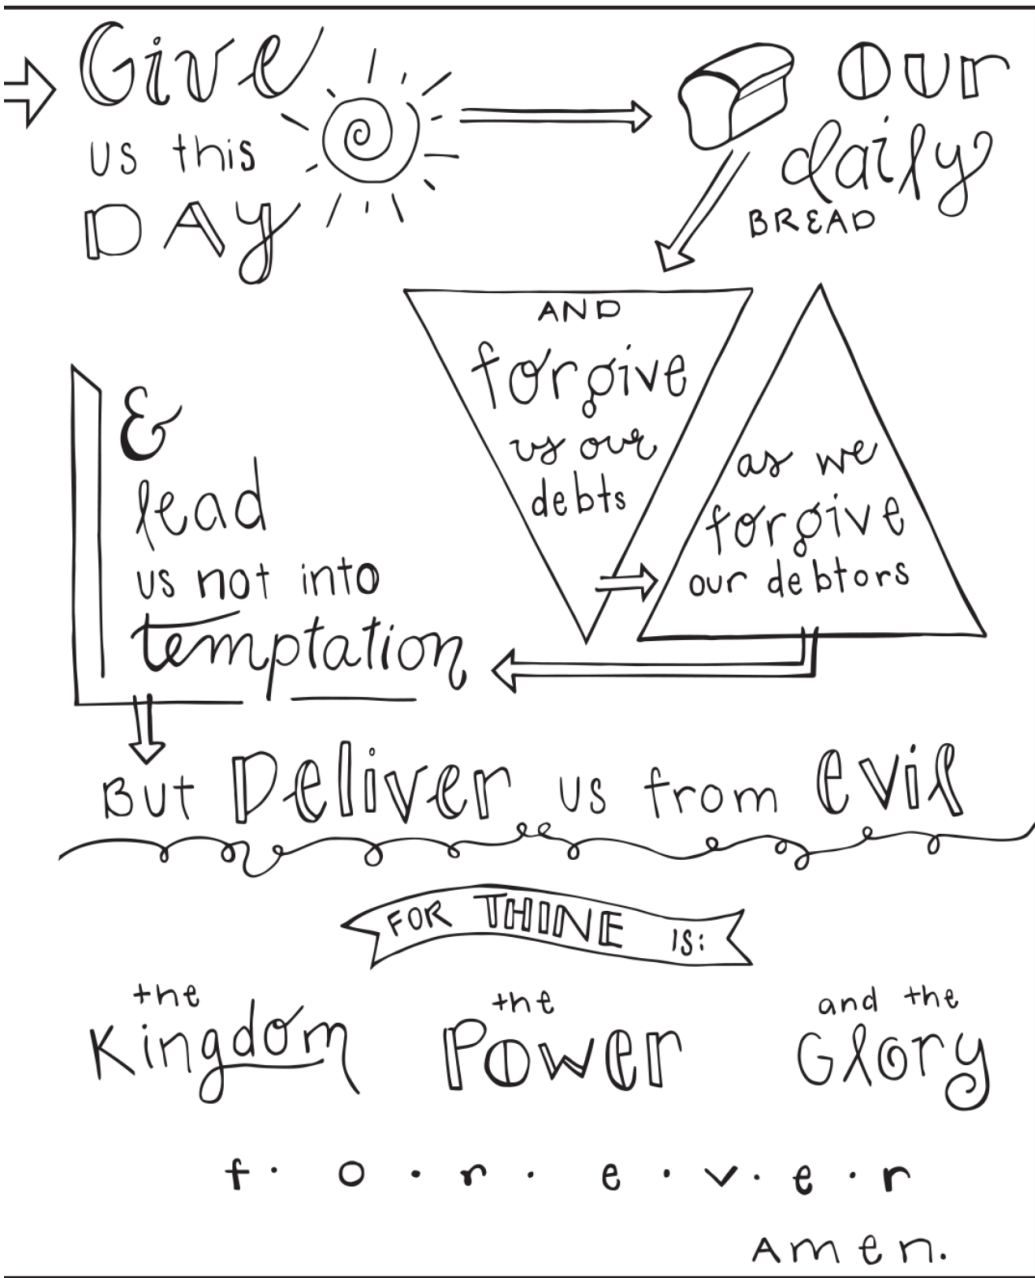 Give
us this
DAY
Our
daily
BREAD
AND
forgive
us our
debts
as we
forgive
our debtors
&
lead
us not into
temptation
But Deliver us from evil
FOR THINE IS:
the
Kingdom
the
Power
and the
Glory
f. o . r . e . v . e . r
Amen.